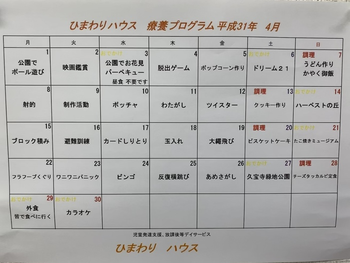 ひまわりハウス 療養プログラム 平成31年 4月
月 火 水 木 金 土 日
1 公園でボール遊び
2 映画鑑賞
3 公園でお花見 バーベキュー 昼食 不要です
4 脱出ゲーム
5 ポップコーン作り
6 ドリーム21
調理 7 うどん作り かやく御飯
8 射的
9 制作活動
10 ボッチャ
11 わたがし
12 ツイスター
調理 13 クッキー作り
14 ハーベストの丘
15 ブロック積み
16 避難訓練
17 カードしりとり
18 玉入れ
19 大縄飛び
調理 20 ビスケットケーキ
21 たこ焼きミュージアム
22 フラフープくぐり
23 ワニワニパニック
24 ビンゴ
25 反復横跳び
26 あめさがし
27 久宝寺緑地公園
調理 28 チーズタッカルビ定食
29 外食 皆で食べに行く
30 カラオケ
児童発達支援、放課後等デイサービス
ひまわり ハウス